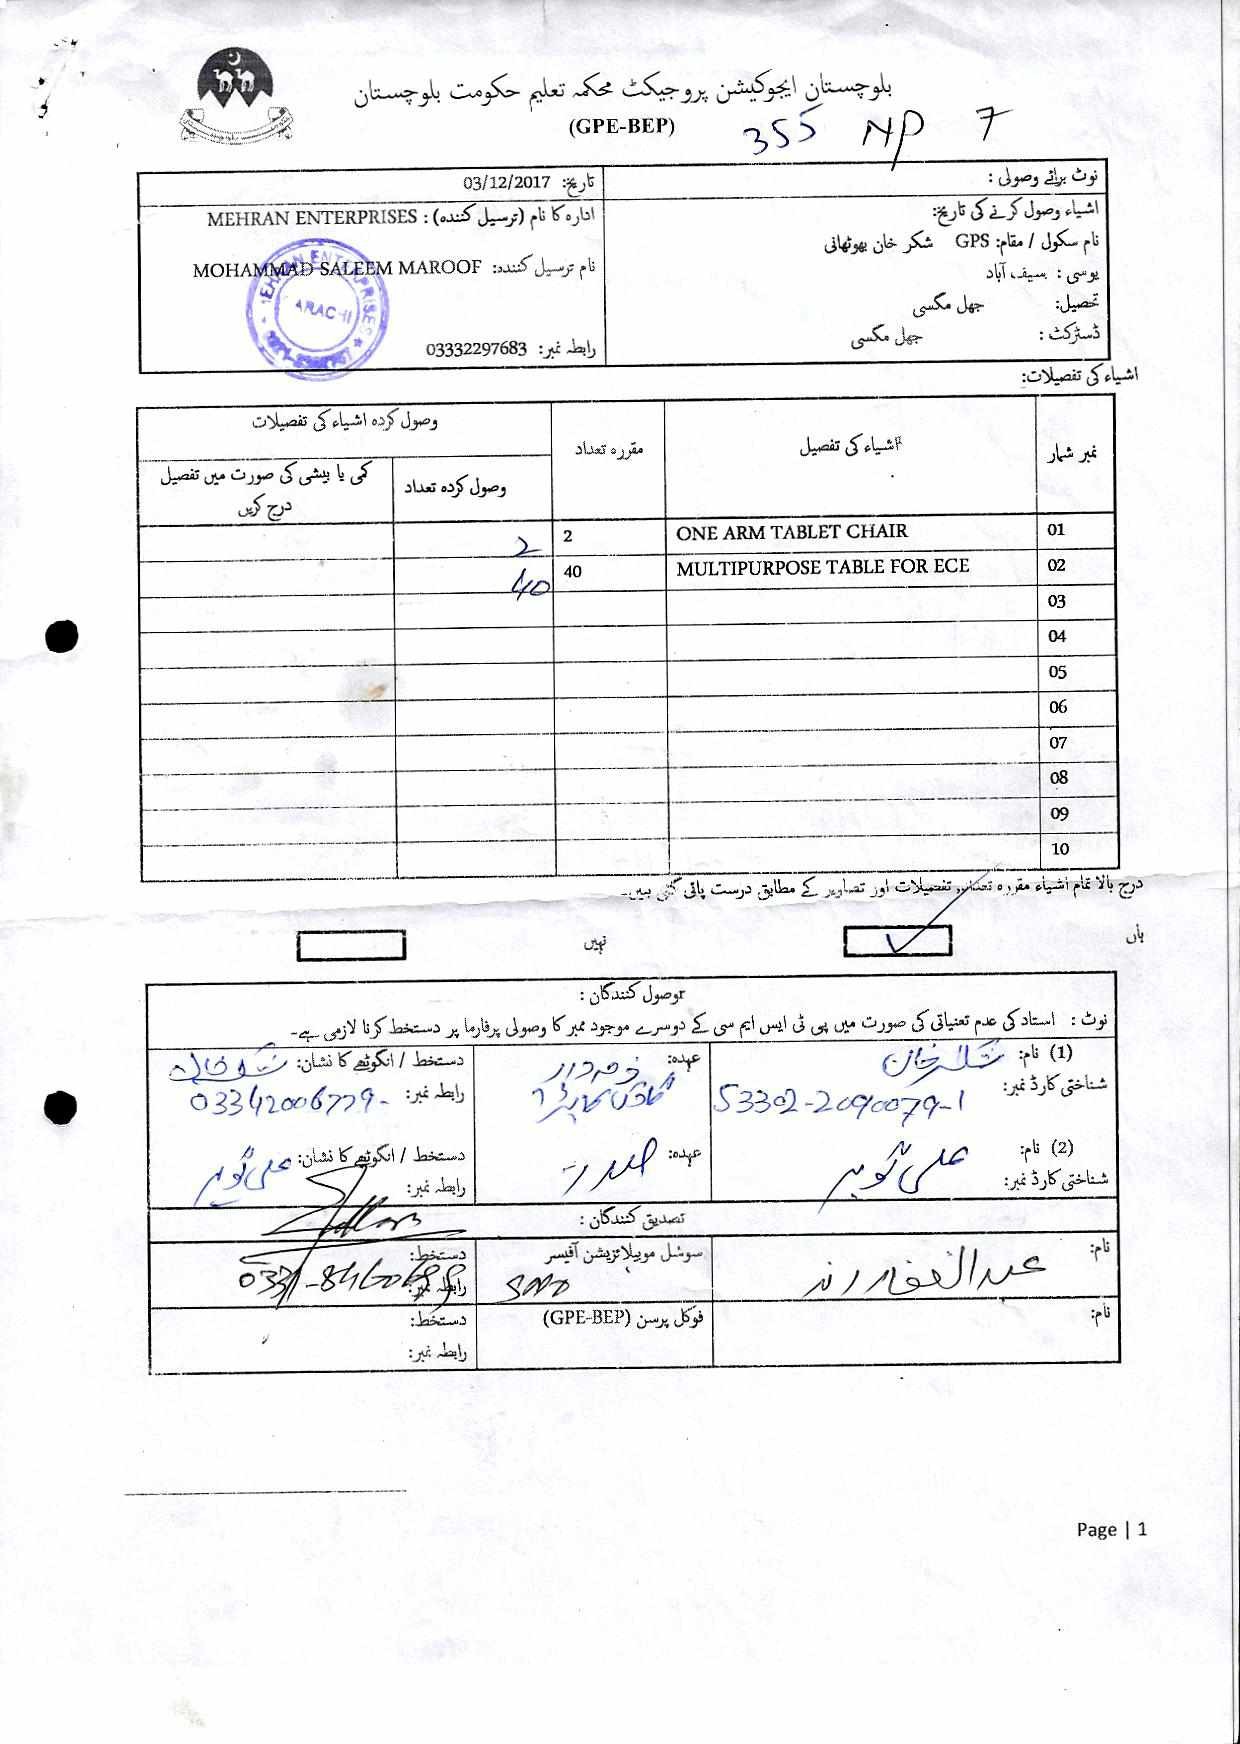 بلوچستان ایجوکیشن پروجیکٹ محکمہ تعلیم حکومت بلوچستان
(GPE-BEP)
355 NP 7
نوٹ برائے وصولی :
اشیاء وصول کرنے کی تاریخ:
نام سکول / مقام: GPS شکر خان بھوٹھانی
یوسی : سیف آباد
تحصیل: جھل مگسی
ڈسٹرکٹ : جھل مگسی
تاریخ: 03/12/2017
ادارہ کا نام (ترسیل کنندہ) : MEHRAN ENTERPRISES
نام ترسیل کنندہ: MOHAMMAD SALEEM MAROOF
رابطہ نمبر: 03332297683
MEHRAN ENTERPRISES
KARACHI
اشیاء کی تفصیلات:
نمبر شمار اشیاء کی تفصیل مقررہ تعداد وصول کردہ اشیاء کی تفصیلات
وصول کردہ تعداد کمی یا بیشی کی صورت میں تفصیل درج کریں
01 ONE ARM TABLET CHAIR 2 2
02 MULTIPURPOSE TABLE FOR ECE 40 40
03
04
05
06
07
08
09
10
درج بالا تمام اشیاء مقررہ تعداد، تفصیلات اور تصاویر کے مطابق درست پائی گئی ہیں۔
ہاں ✓ نہیں
وصول کنندگان :
نوٹ : استاد کی عدم تعنیاتی کی صورت میں پی ٹی ایس ایم سی کے دوسرے موجود ممبر کا وصولی پرفارما پر دستخط کرنا لازمی ہے۔
(1) نام: شکر خان عہدہ: دستخط / انگوٹھے کا نشان: شکر خان
شناختی کارڈ نمبر: 53302-2090079-1 رابطہ نمبر: 03342006779
(2) نام: علی گوہر عہدہ: صدر دستخط / انگوٹھے کا نشان: علی گوہر
شناختی کارڈ نمبر: رابطہ نمبر:
تصدیق کنندگان :
نام: عبدالغفار رند سوشل موبیلائزیشن آفیسر دستخط:
رابطہ نمبر:
نام: فوکل پرسن (GPE-BEP) دستخط:
رابطہ نمبر:
Page | 1